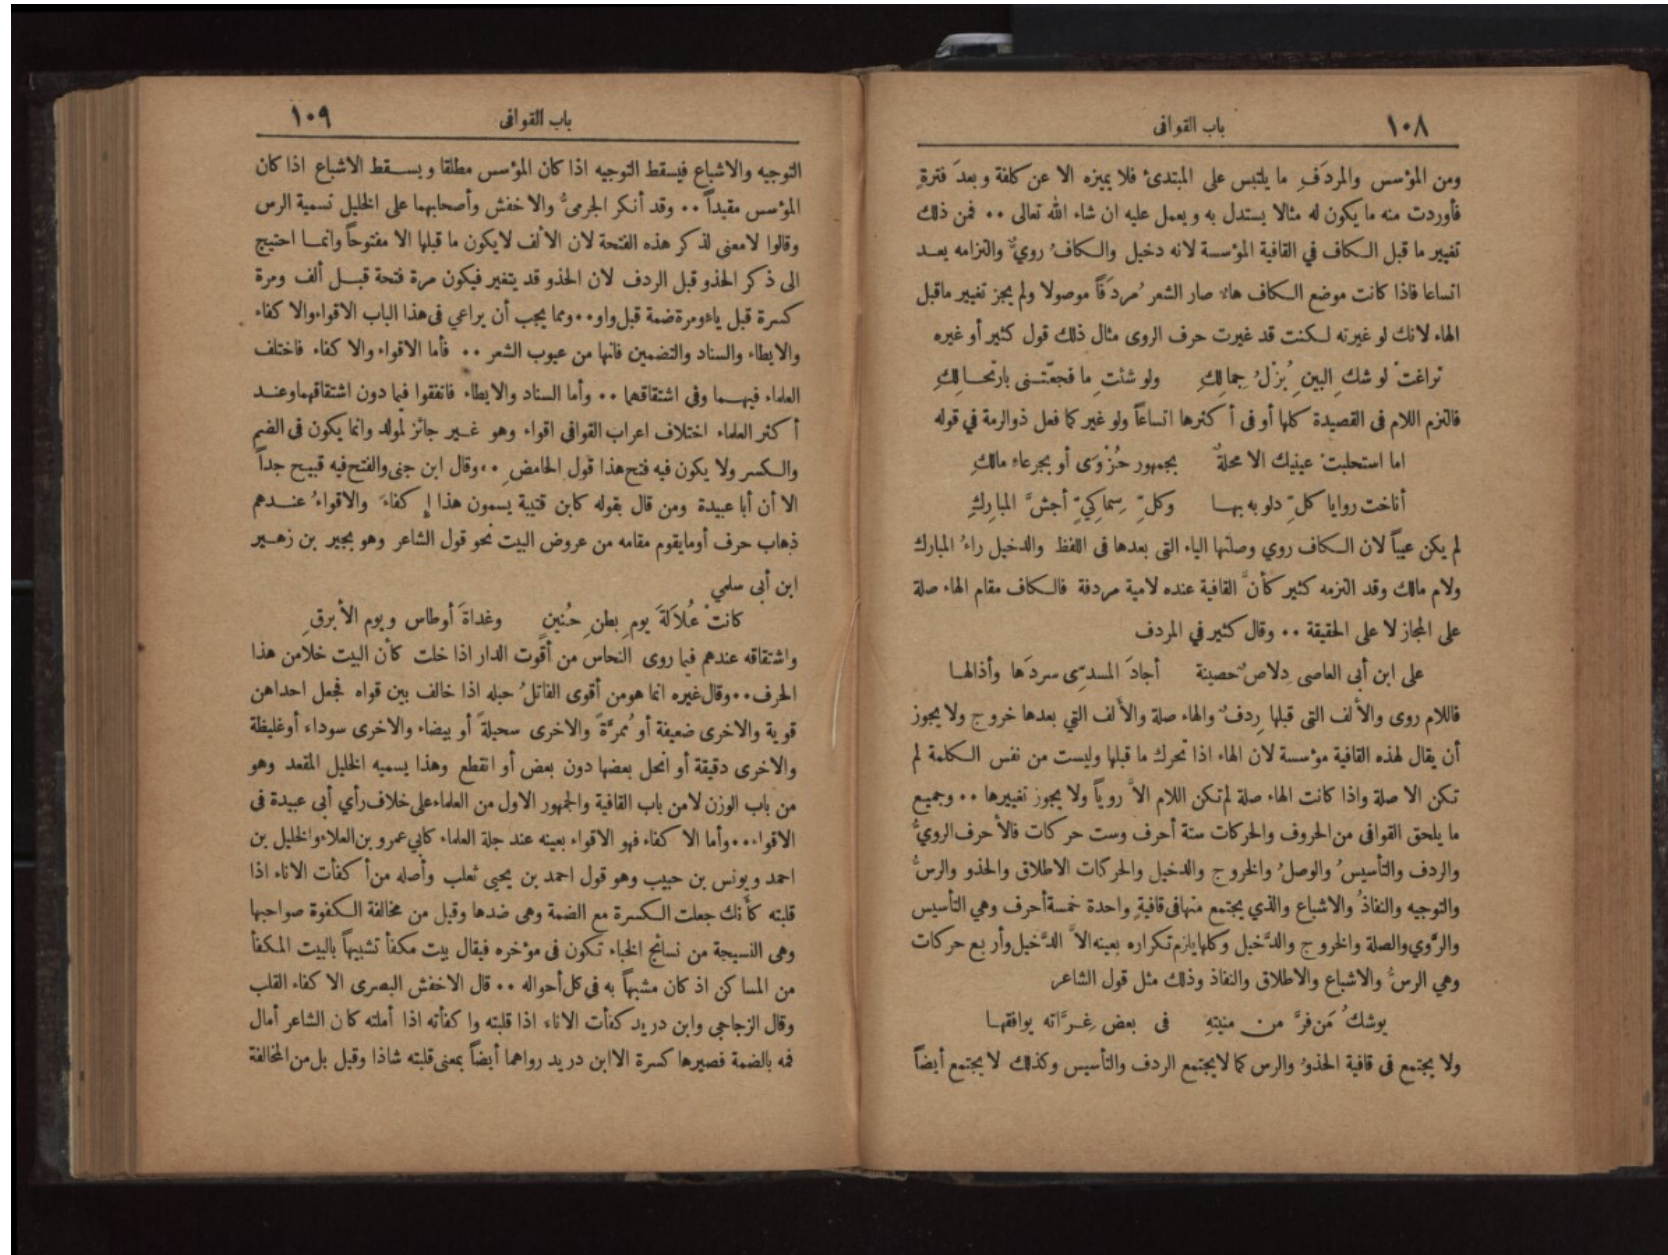 ١٠٨ باب القوافى
ومن المؤسس والمردَفِ ما يلتبس على المبتدئ فلا يميزه الا عن كلفة وبعدَ فترةٍ
فأوردت منه ما يكون له مثالا يستدل به ويعمل عليه ان شاء الله تعالى ٠٠ فمن ذلك
تغيير ما قبل الكاف في القافية المؤسسة لانه دخيل والكافُ رويٌّ والتزامه يعد
اتساعا فاذا كانت موضع الكاف هاءٌ صار الشعر مُردَفًا موصولا ولم يجز تغيير ماقبل
الهاء لانك لو غيرته لكنت قد غيرت حرف الروى مثال ذلك قول كثير أو غيره
تراغتْ لو شك البينِ بُزْلُ جِمالِكِ ولو شئتِ ما فجعّتنى بارتحالِكِ
فالتزم اللام فى القصيدة كلها أو فى أكثرها اتساعاً ولو غير كما فعل ذوالرمة في قوله
اما استحلبتْ عينيك الا محلةٌ بجمهور حُزْوَى أو بجرعاء مالكِ
أناخت روايا كلِّ دلوية بها وكلِّ سِماكِيٍّ أجشَّ المبارِكِ
لم يكن عيباً لان الكاف روي وصلتها الياء التى بعدها فى اللفظ والدخيل راءُ المبارك
ولام مالك وقد التزمه كثير كأنَّ القافية عنده لامية مردفة فالكاف مقام الهاء صلة
على المجاز لا على الحقيقة ٠٠ وقال كثير في المردف
على ابن أبى العاصى دِلاصٌ حصينة أجادَ المسدِّى سردَها وأذالها
فاللام روى والألف التى قبلها رِدفٌ والهاء صلة والألف التي بعدها خروج ولا يجوز
أن يقال لهذه القافية مؤسسة لان الهاء اذا تحرك ما قبلها وليست من نفس الكلمة لم
تكن الا صلة واذا كانت الهاء صلة لم تكن اللام الاَّ رويّاً ولا يجوز تغييرها ٠٠ وجميع
ما يلحق القوافى من الحروف والحركات ستة أحرف وست حركات فالأحرف الرويُّ
والردف والتأسيسُ والوصلُ والخروج والدخيل والحركات الاطلاق والحذو والرسُّ
والتوجيه والنفاذُ والاشباع والذي يجتمع منها فى قافيةٍ واحدة خمسة أحرف وهي التأسيس
والرَّوي والصلة والخروج والدَّخيل وكلها يلزم تكراره بعينه الاَّ الدَّخيل وأربع حركات
وهي الرسُّ والاشباع والاطلاق والنفاذ وذلك مثل قول الشاعر
يوشكُ مَن فرَّ من منيتِهِ فى بعض غِرَّاته يوافقها
ولا يجتمع فى قافية الحذوُ والرس كما لا يجتمع الردف والتأسيس وكذلك لا يجتمع أيضاً
باب القوافى ١٠٩
التوجيه والاشباع فيسقط التوجيه اذا كان المؤسس مطلقا ويسقط الاشباع اذا كان
المؤسس مقيداً ٠٠ وقد أنكر الجرميُّ والاخفش وأصحابهما على الخليل تسمية الرس
وقالوا لامعنى لذكر هذه الفتحة لان الألف لايكون ما قبلها الا مفتوحاً وانما احتيج
الى ذكر الحذو قبل الردف لان الحذو قد يتغير فيكون مرة فتحة قبل ألف ومرة
كسرة قبل ياء ومرة ضمة قبل واو ٠٠ ومما يجب أن يراعي فى هذا الباب الاقواء والاكفاء
والايطاء والسناد والتضمين فانها من عيوب الشعر ٠٠ فأما الاقواء والاكفاء فاختلف
العلماء فيهما وفى اشتقاقهما ٠٠ وأما السناد والايطاء فاتفقوا فيما دون اشتقاقهما وعند
أكثر العلماء اختلاف اعراب القوافى اقواء وهو غير جائز لمولد وانما يكون فى الضم
والكسر ولا يكون فيه فتح هذا قول الحامضِ ٠٠ وقال ابن جنى والفتح فيه قبيح جداً
الا أن أبا عبيدة ومن قال بقوله كابن قتيبة يسمون هذا إكفاءَ والاقواءُ عندهم
ذهاب حرف أومايقوم مقامه من عروض البيت نحو قول الشاعر وهو بجير بن زهير
ابن أبى سلمي
كانتْ عُلاَلَةَ يومِ بطنِ حُنينٍ وغداةَ أوطاس ويوم الأبرقِ
واشتقاقه عندهم فيما روى النحاس من أقوت الدار اذا خلت كأن البيت خلامن هذا
الحرف ٠٠ وقال غيره انما هو من أقوى الفاتلُ حبله اذا خالف بين قواه فجعل احداهن
قوية والاخرى ضعيفة أو مُمرَّةً والاخرى سحيلةً أو بيضاء والاخرى سوداء أوغليظة
والاخرى دقيقة أو انحل بعضها دون بعض أو انقطع وهذا يسميه الخليل المقعد وهو
من باب الوزن لامن باب القافية والجمهور الاول من العلماء على خلاف رأي أبى عبيدة فى
الاقواء ٠٠ وأما الاكفاء فهو الاقواء بعينه عند جلة العلماء كابي عمرو بن العلاء والخليل بن
احمد ويونس بن حبيب وهو قول احمد بن يحيى ثعلب وأصله من أكفأت الاناء اذا
قلبته كأنك جعلت الكسرة مع الضمة وهى ضدها وقيل من مخالفة الكفوة صواحبها
وهى النسيجة من نسائج الخباء تكون فى مؤخره فيقال بيت مكفأ تشبيهاً بالبيت المكفأ
من المساكن اذ كان مشبهاً به فى كل أحواله ٠٠ قال الاخفش البصرى الاكفاء القلب
وقال الزجاجى وابن دريد كفأت الاناء اذا قلبته واكفأته اذا أملته كان الشاعر أمال
فمه بالضمة فصيرها كسرة الا ابن دريد رواهما أيضاً بمعنى قلبته شاذا وقيل بل من المخالفة